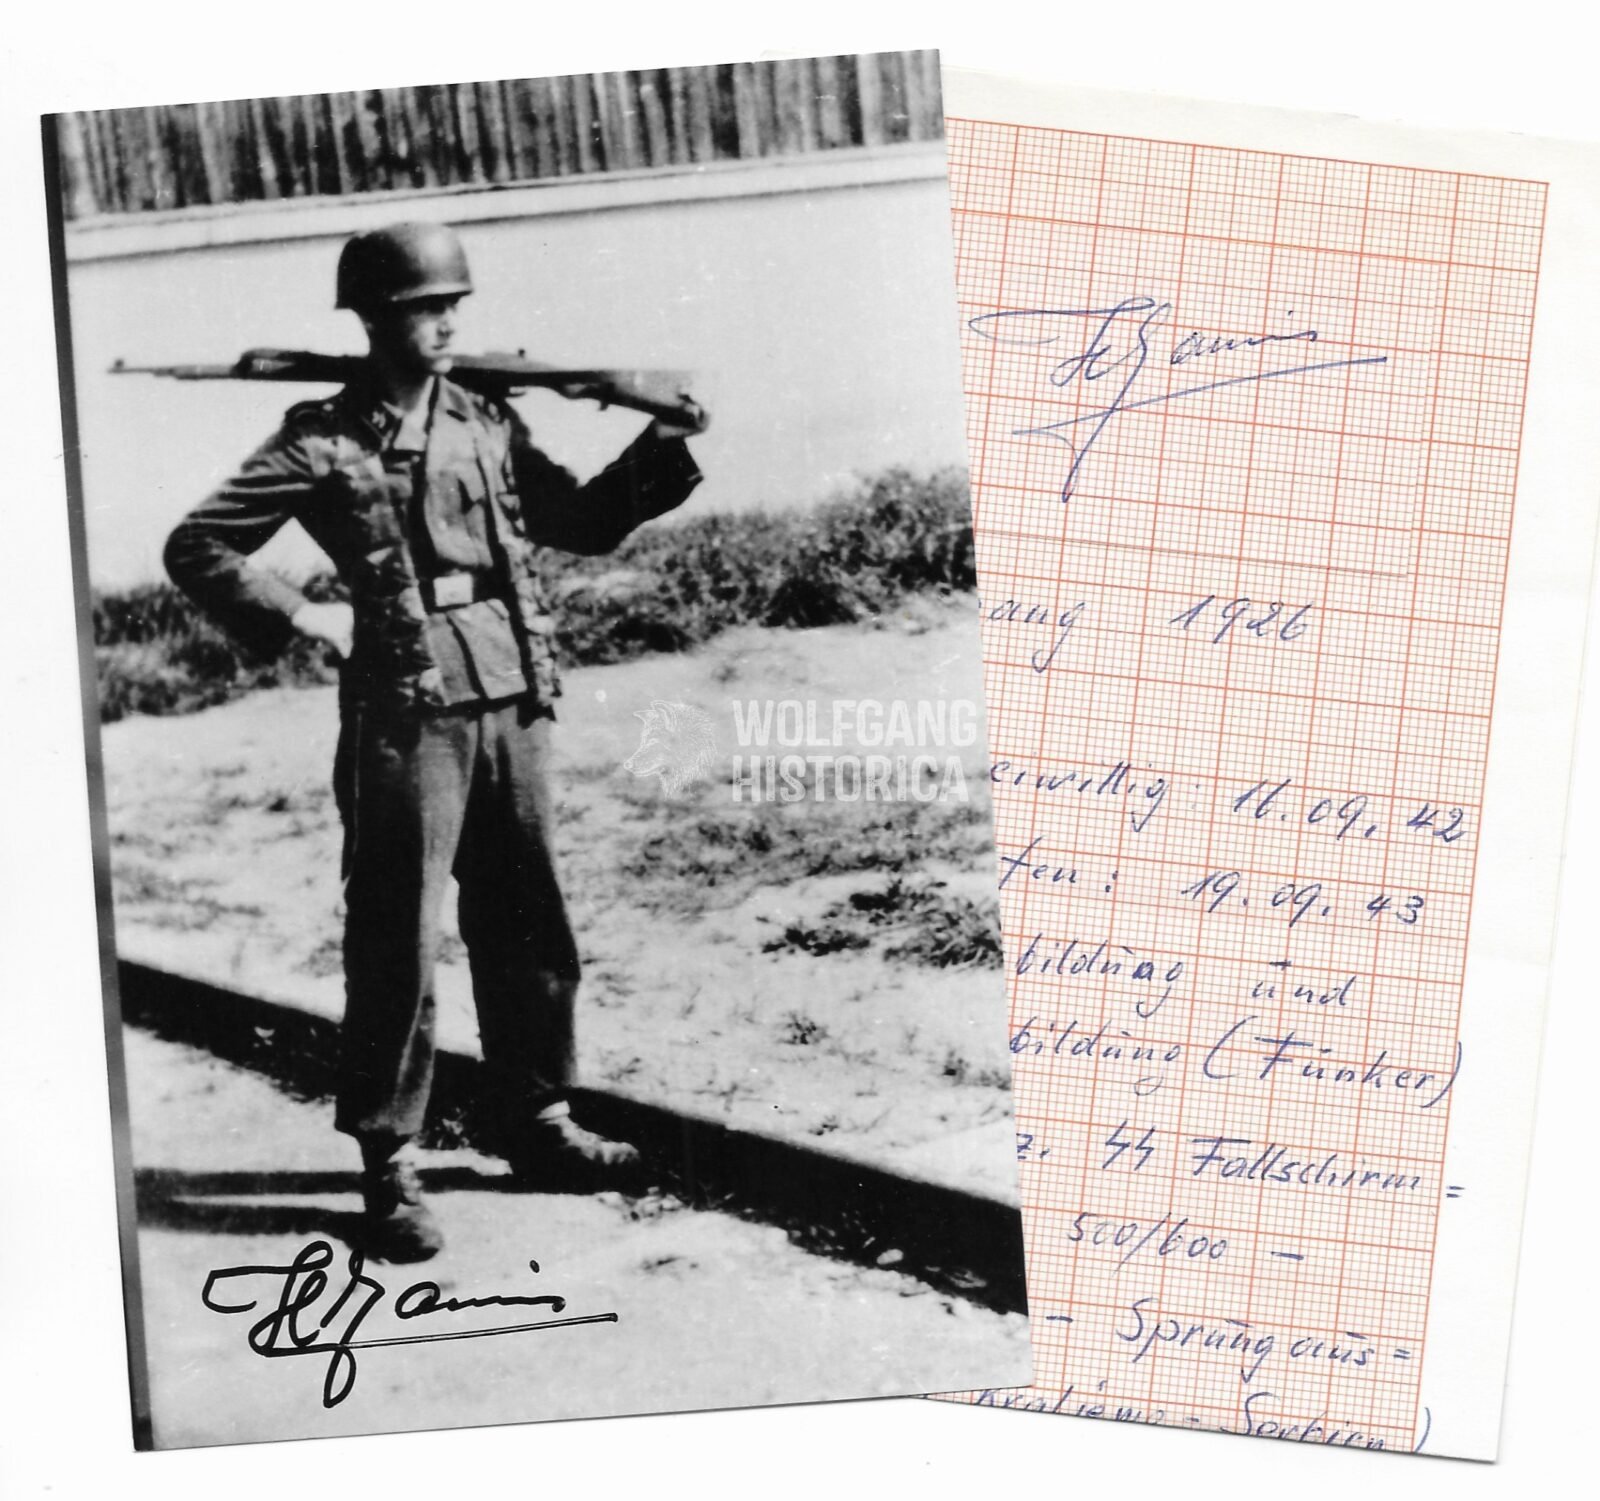 WOLFGANG
HISTORICA
ang 1926
eiwillig: 16.09.42
ten: 19.09.43
bildung und
bildung (Funker)
z. SS Fallschirm=
500/600 -
- Sprungaus=
Kraljewo - Serbien)